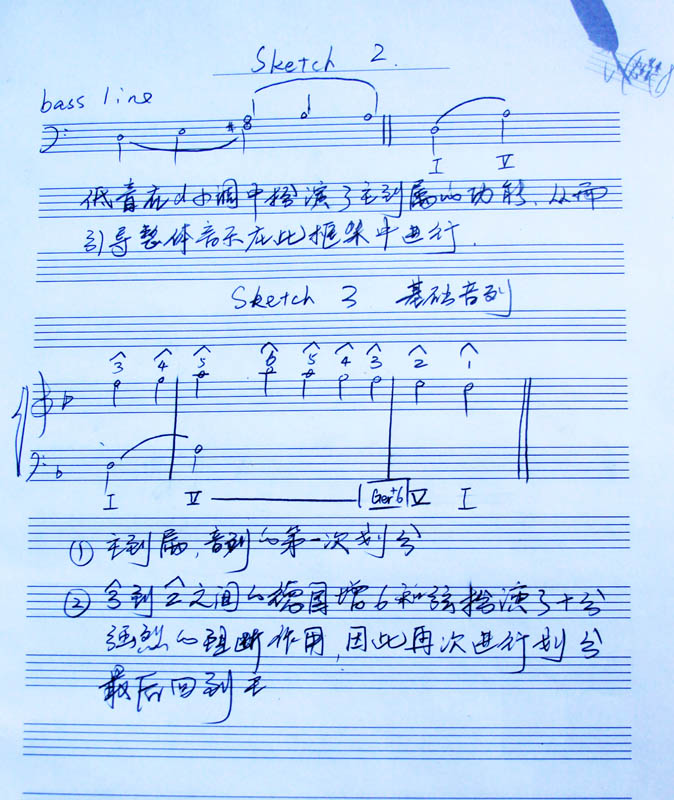 Sketch 2.
bass line
I V
低音在d小调中扮演了主到属的功能、从而
引导整体音乐在此框架中进行.
Sketch 3 基础音列
3 4 5 6 5 4 3 2 1
I V Ger+6 V I
① 主到属,音列的第一次划分
② 3到2之间的德国增6和弦扮演了十分
强烈的阻断作用,因此再次进行划分
最后回到主